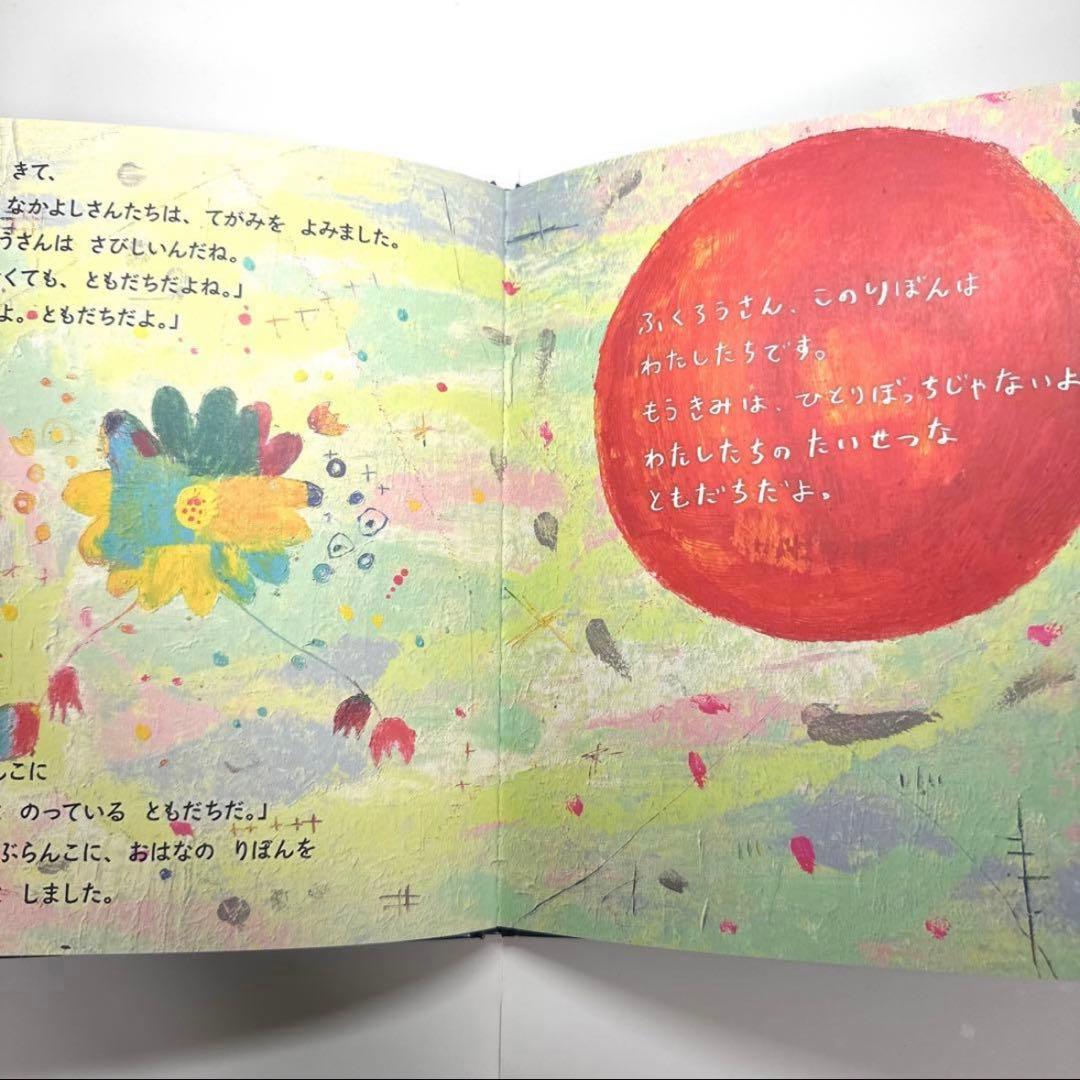 きて、
なかよしさんたちは、てがみを よみました。
うさんは さびしいんだね。
くても、ともだちだよね。」
よ。ともだちだよ。」
んこに
のっている ともだちだ。」
ぶらんこに、おはなの りぼんを
しました。
ふくろうさん、このりぼんは
わたしたちです。
もうきみは、ひとりぼっちじゃないよ
わたしたちの たいせつな
ともだちだよ。